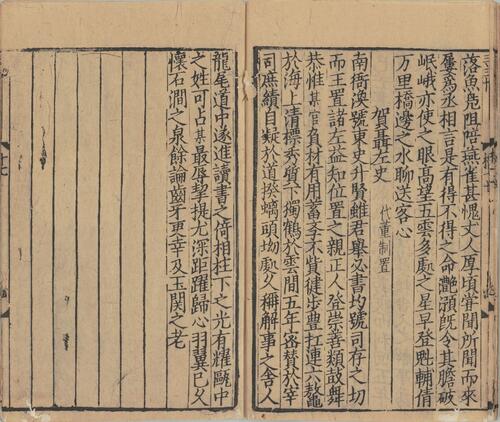 落魚鳧阻陪燕雀甚愧丈人厚頃嘗聞所聞而來
屢爲丞相言是有得不得之命灔澦旣令其膽破
岷峨亦使之眼髙望五雲多處之星早登魁輔倩
万里橋邊之水聊送客心
賀聶左史
代重制置
南衙渙號東史升賢雖君舉必書均號可存之切
而王置諸左益知位置之親正人登崇善類鼓舞
恭惟某官負材有用蓄
於海上清標秀質下獨鶴於雲間五年密賛於宰
司庶績自凝於道揆螭頭坳處久稱解事之舍人
龍尾道中遂進讀書之倚相柱下之光有耀甌中
之姓可占某最辱挈提尤深距躍歸心羽翼已久
懷石澗之泉餘論齒牙更幸及玉関之老